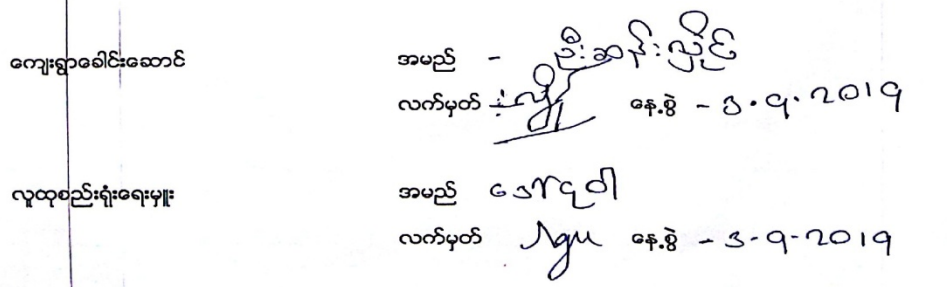 ကျေးရွာခေါင်းဆောင် အမည် - ဦးဆန်းလှိုင်
လက်မှတ် - နေ့စွဲ - 3.9.2019
လူထုစည်းရုံးရေးမှူး အမည် ဒေါ်ငုဝါ
လက်မှတ် Ngu နေ့စွဲ - 3-9-2019